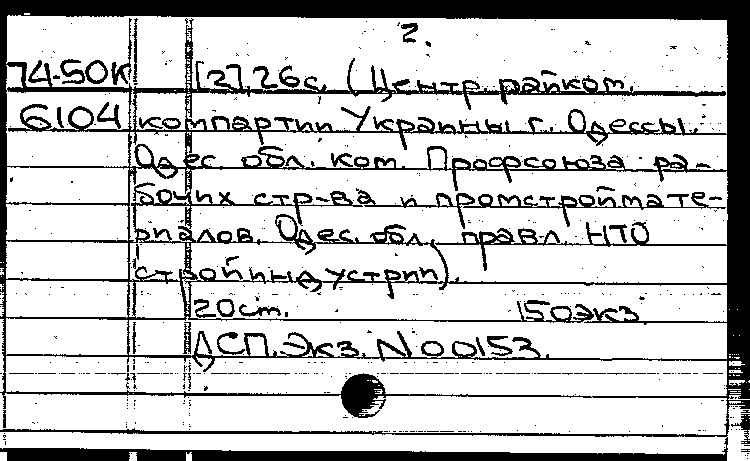 2.
74-50К [2],26с. (Центр. райком.
6104 компартии Украины г. Одессы.
Одес. обл. ком. Профсоюза ра-
бочих стр-ва и промстроймате-
риалов. Одес. обл. правл. НТО
стройиндустрии).
20см. 150экз.
ДСП. Экз. N00153.